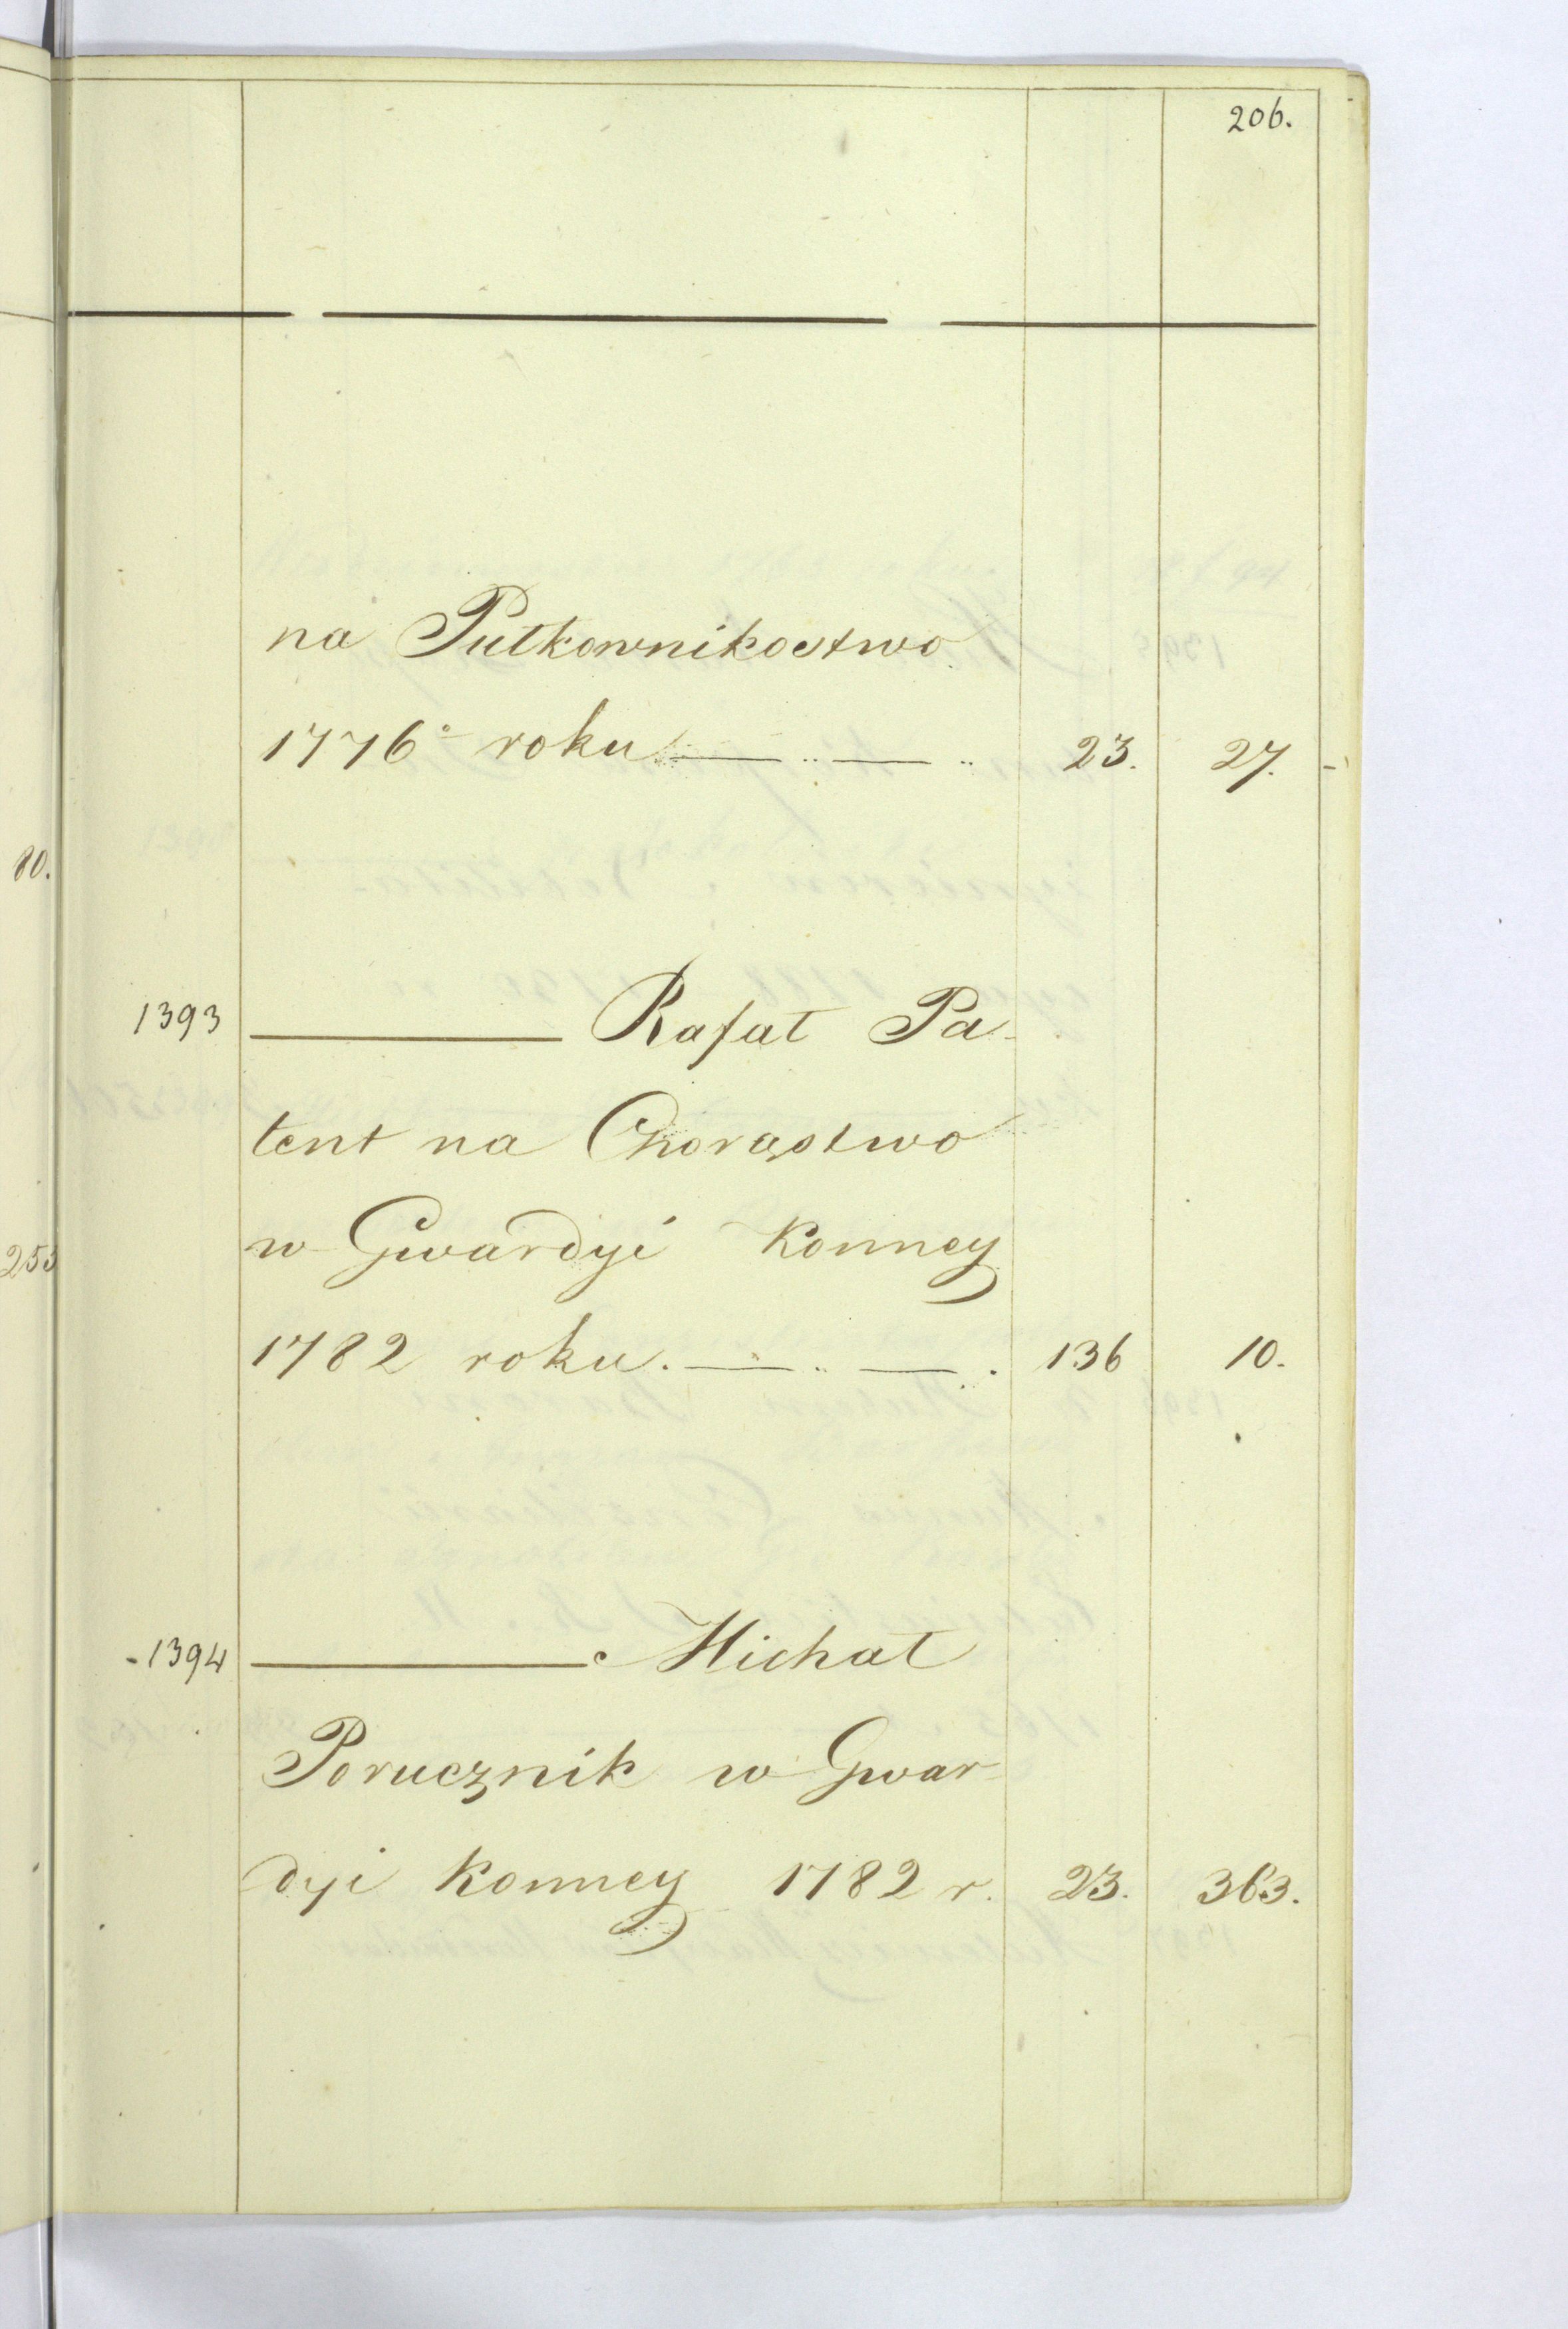 206.
na Pułkownikostwo
1776º roku — .. — .. 23. 27. -
80.
1393 ——— Rafał Pa-
tent na Chorąstwo
w Gwardyi Konney
253
1782 roku. — .. — . 136 10.
-1394 ——— Michał
Porucznik w Gwar
dyi Konney 1782 r. 23. 363.